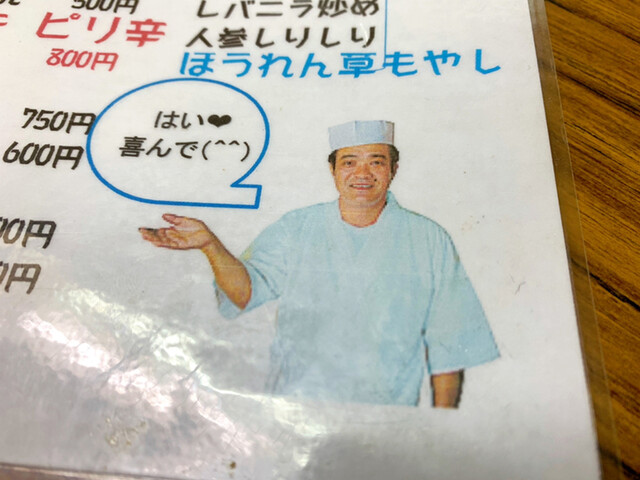 500円
レバニラ炒め
ピリ辛
人参しりしり
800円
ほうれん草もやし
750円
600円
はい❤
喜んで(^^)
00円
0円